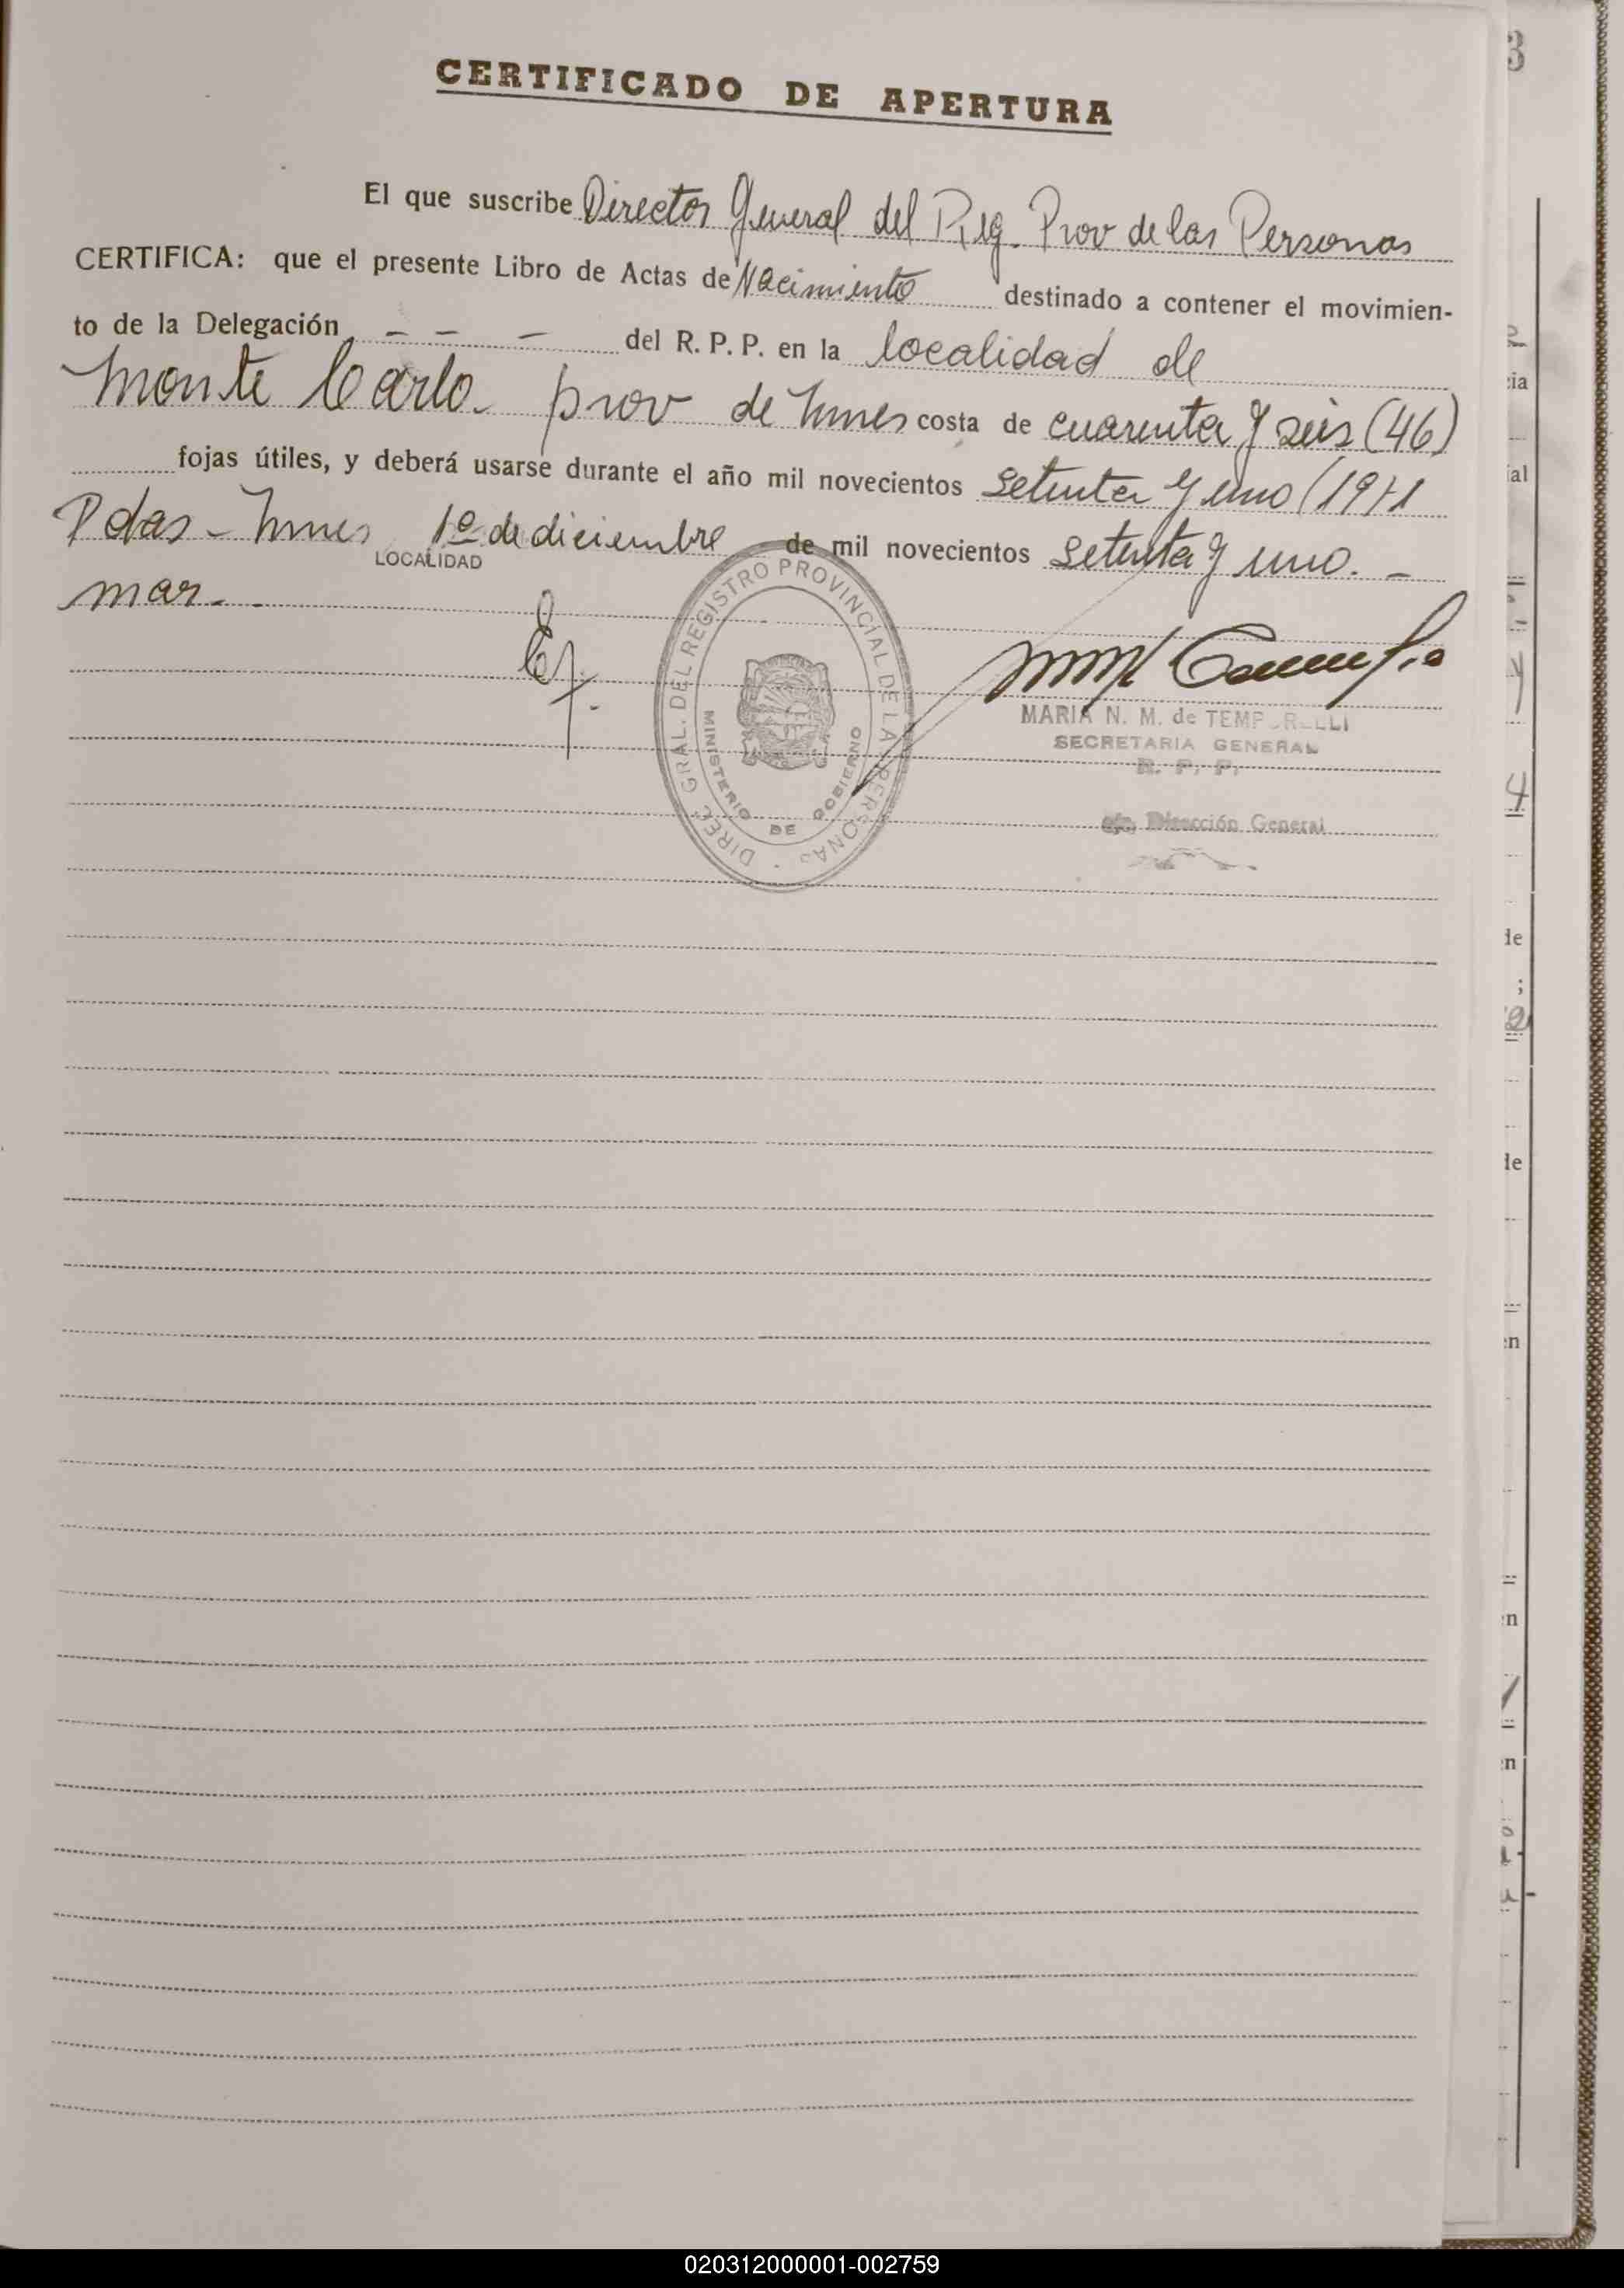 CERTIFICADO DE APERTURA
El que suscribe Director General del Reg. Prov de las Personas
CERTIFICA: que el presente Libro de Actas de Nacimiento destinado a contener el movimien-
to de la Delegación — — — del R. P. P. en la localidad de
Monte Carlo - prov de Mnes costa de cuarenta y seis (46)
fojas útiles, y deberá usarse durante el año mil novecientos setenta y uno (1971
Pdas - Mnes 1º de diciembre de mil novecientos setenta y uno. -
LOCALIDAD
mar.
DIREC. GRAL. DEL REGISTRO PROVINCIAL DE LA PERSONAS
MINISTERIO DE GOBIERNO
MARIA N. M. de TEMPORELLI
SECRETARIA GENERAL
R. P. P.
Dirección General
3
ia
al
4
de
;
de
en
n
n
020312000001-002759